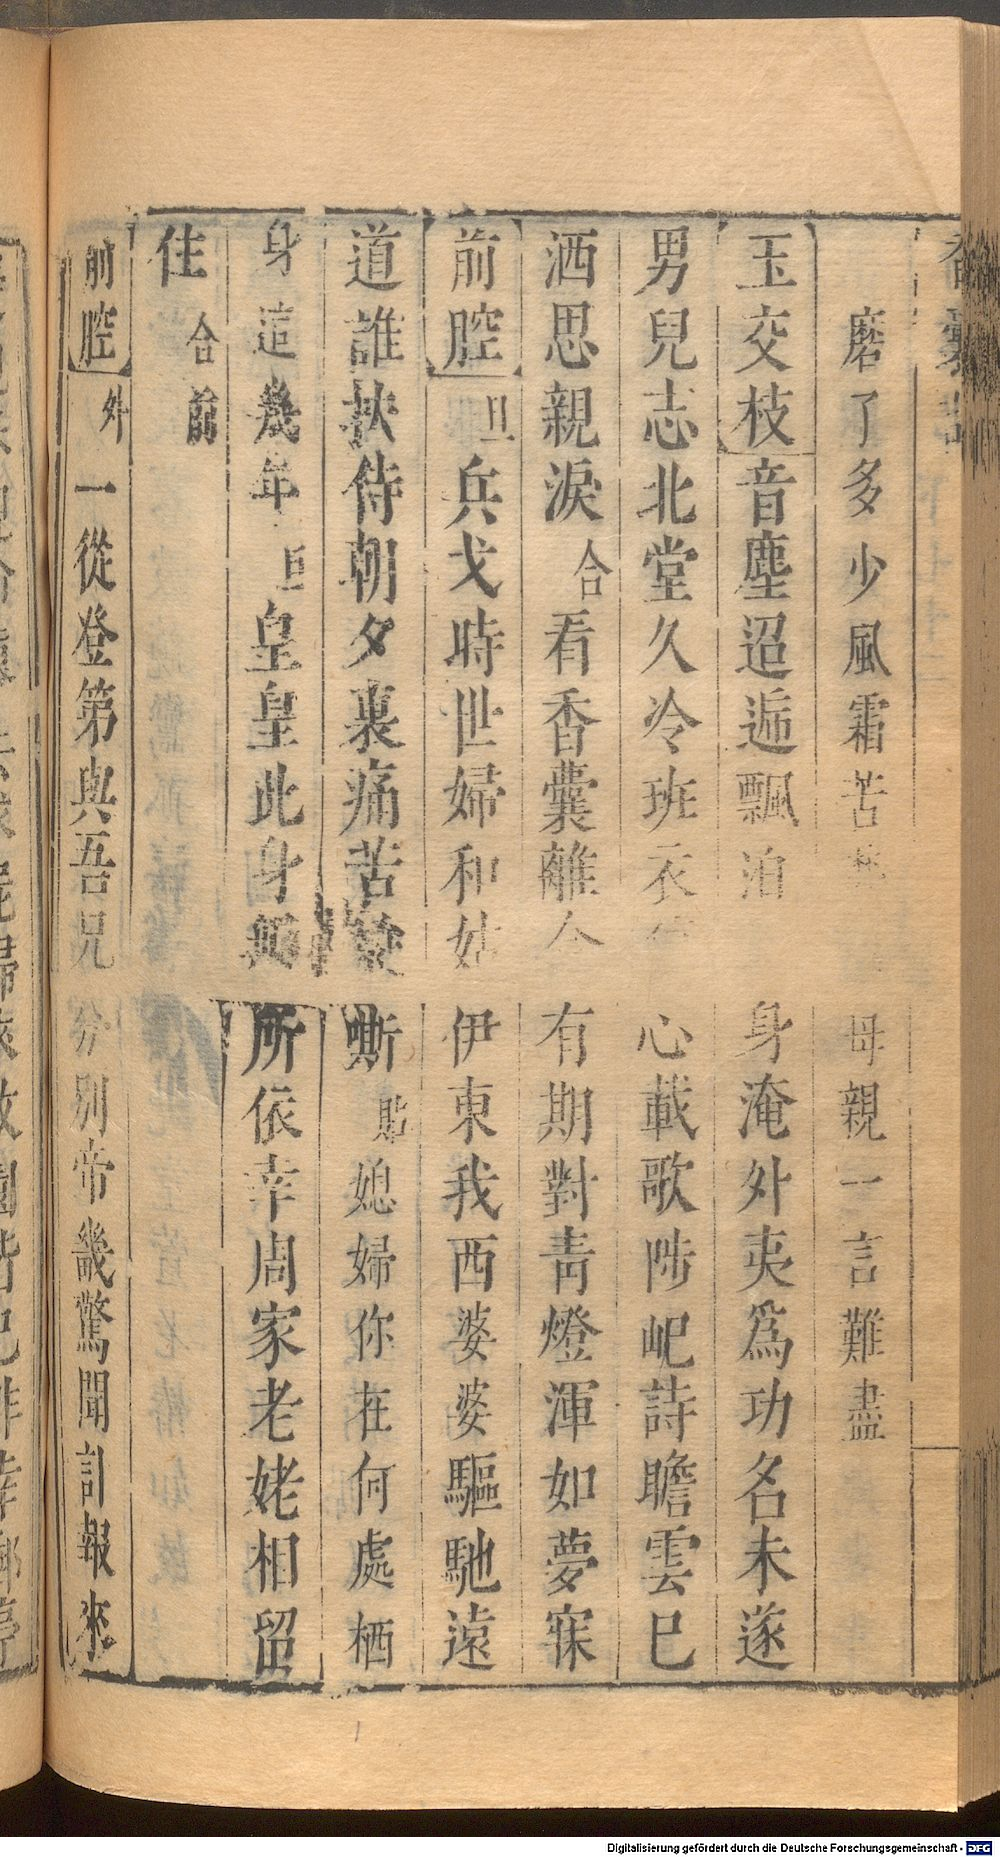 磨了多少風霜苦母親一言難盡
玉交枝音塵迢遞飄泊身淹外夷爲功名未遂
男兒志北堂久冷班衣心載歌陟屺詩瞻雲已
洒思親淚合看香囊離合有期對靑燈渾如夢寐
前腔旦兵戈時世婦和姑伊東我西婆婆驅馳遠
道誰扶侍朝夕裏痛苦嘶貼媳婦你在何處栖
身這幾年旦皇皇此身所依幸周家老姥相留
住合前
前腔外一從登第與吾兄分別帝畿驚聞訃報來
Digitalisierung gefördert durch die Deutsche Forschungsgemeinschaft - DFG